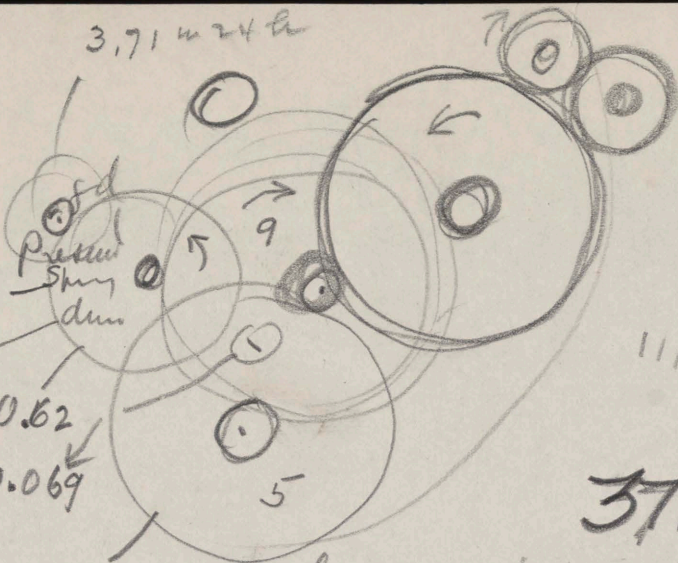 3.71 in 24 h
9
Present
Spring
drum
0.62
0.069
5
37